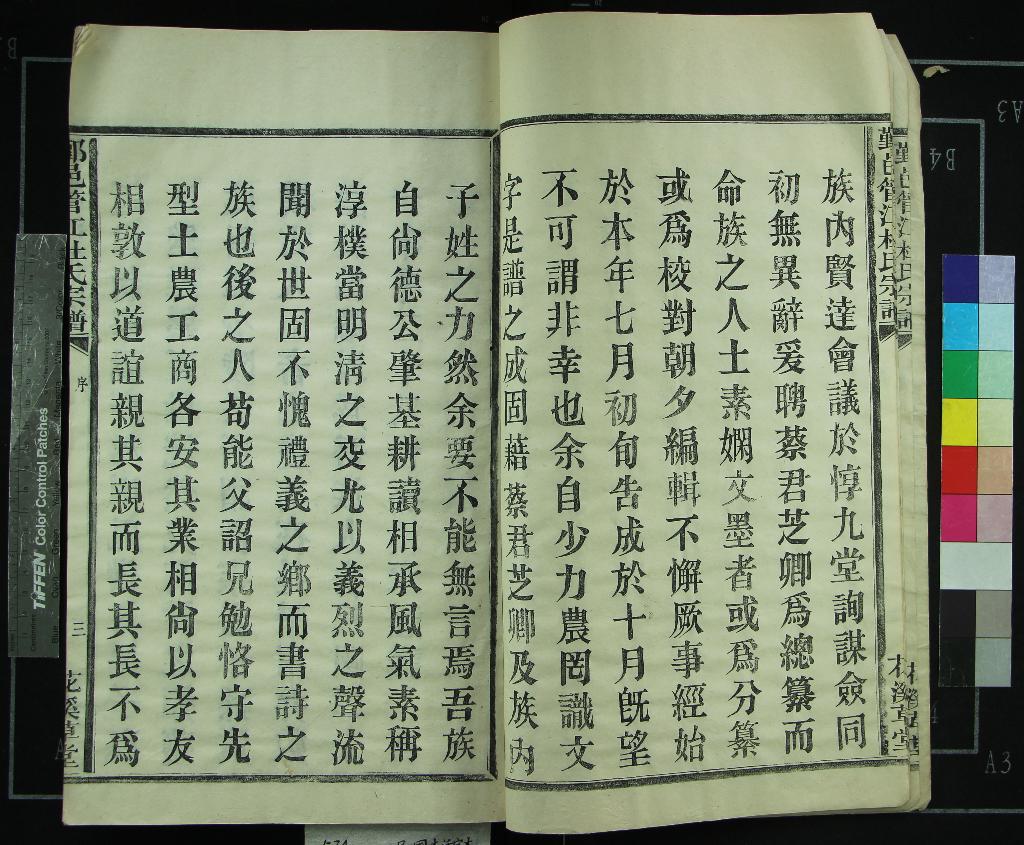 族內賢達會議於惇九堂詢謀僉同
初無異辭爰聘蔡君芝卿爲總纂而
命族之人士素嫻文墨者或爲分纂
或爲校對朝夕編輯不懈厥事經始
於本年七月初旬告成於十月旣望
不可謂非幸也余自少力農罔識文
字是譜之成固藉蔡君芝卿及族內
子姓之力然余要不能無言焉吾族
自尙德公肇基耕讀相承風氣素稱
淳樸當明淸之交尤以義烈之聲流
聞於世固不愧禮義之鄉而書詩之
族也後之人苟能父詔兄勉恪守先
型士農工商各安其業相尙以孝友
相敦以道誼親其親而長其長不爲
序
三
TIFFEN Color Control Patches
A3
B4
A3